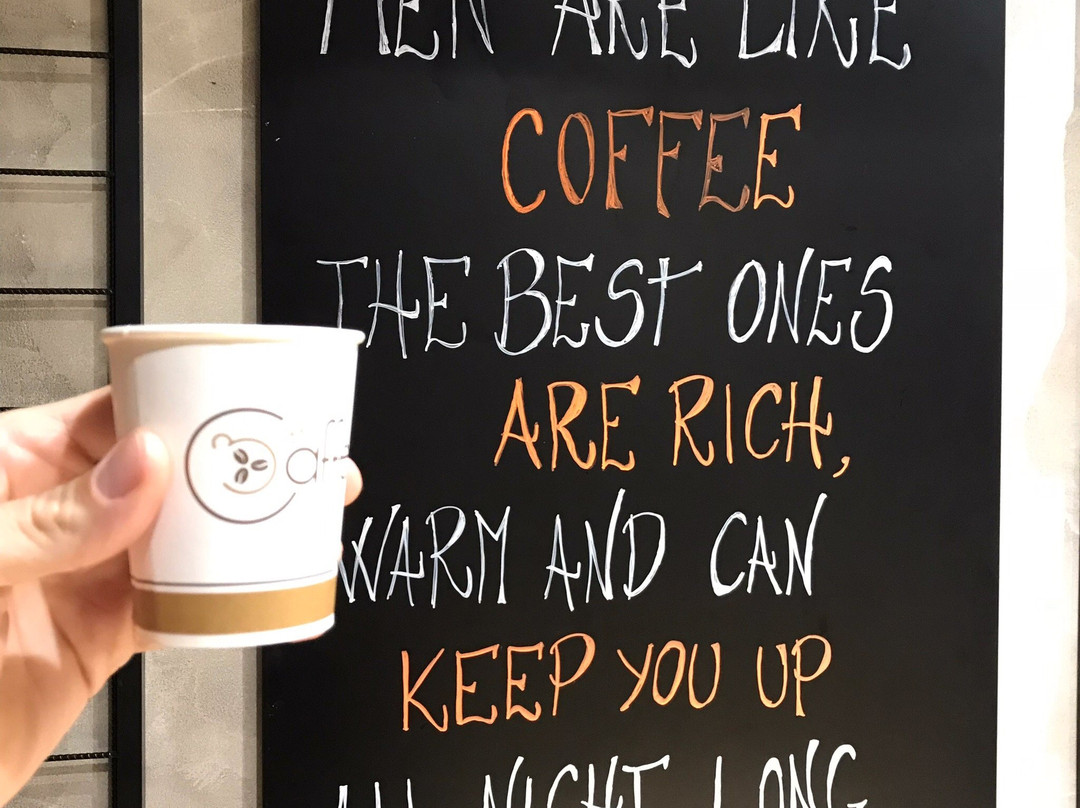 MEN ARE LIKE
COFFEE
THE BEST ONES
ARE RICH,
WARM AND CAN
KEEP YOU UP
ALL NIGHT LONG
Caff